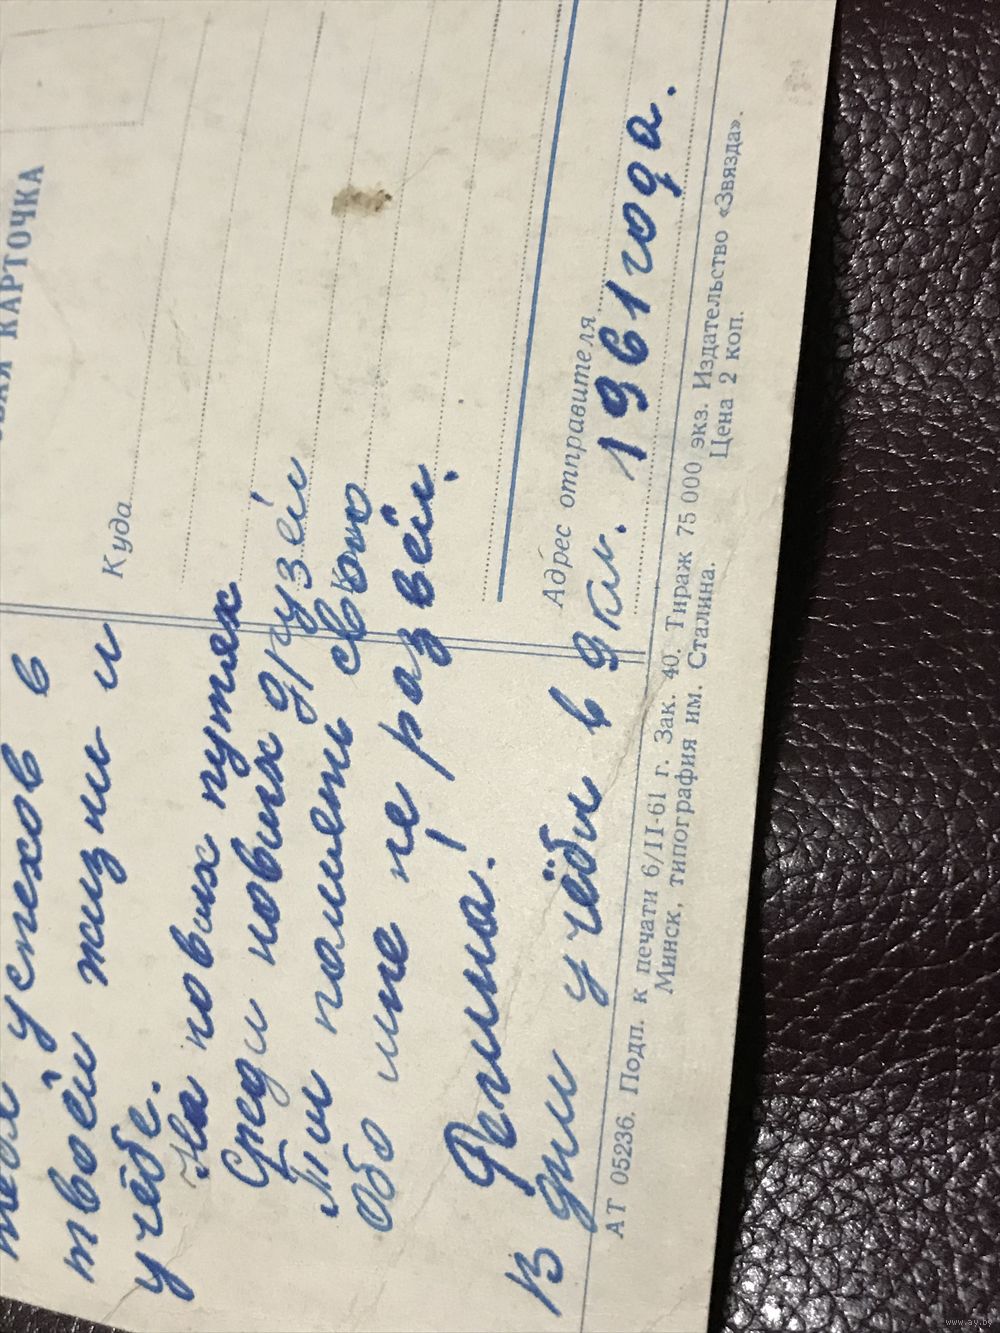 КАРТОЧКА
Куда
Адрес отправителя
успехов в
твоей жизни и
учёбе.
На новых путях
Среди новых друзей
Ты память свою
Обо мне не развей.
Римма!
В дни учёбы в 9 кл. 1961 года.
АТ 05236. Подп. к печати 6/II-61 г. Зак. 40. Тираж 75 000 экз. Издательство «Звязда».
Минск, типография им. Сталина. Цена 2 коп.
www.ay.by